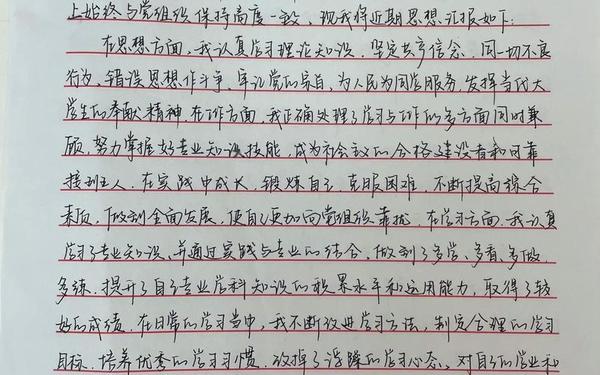 上始终与党组织保持高度一致，现我将近期思想汇报如下：
在思想方面，我认真学习理论知识，坚定共产信念，同一切不良
行为、错误思想作斗争，牢记党的宗旨，为人民为同学服务，发挥当代大
学生的奉献精神。在工作方面，我正确处理了学习与工作的多方面同时兼
顾，努力掌握好专业知识技能，成为社会主义的合格建设者和可靠
接班人。在实践中成长，锻炼自己，克服困难，不断提高综合
素质，做到全面发展，使自己更加向党组织靠拢。在学习方面，我认真
学习了专业知识，并通过实践与专业的结合，做到了多学、多看、多做、
多练，提升了自己专业学科知识的积累水平和运用能力，取得了较
好的成绩。在日常的学习当中，我不断改进学习方法，制定合理的学习
目标，培养优秀的学习习惯，改掉了浮躁的学习心态，对自己的学业和